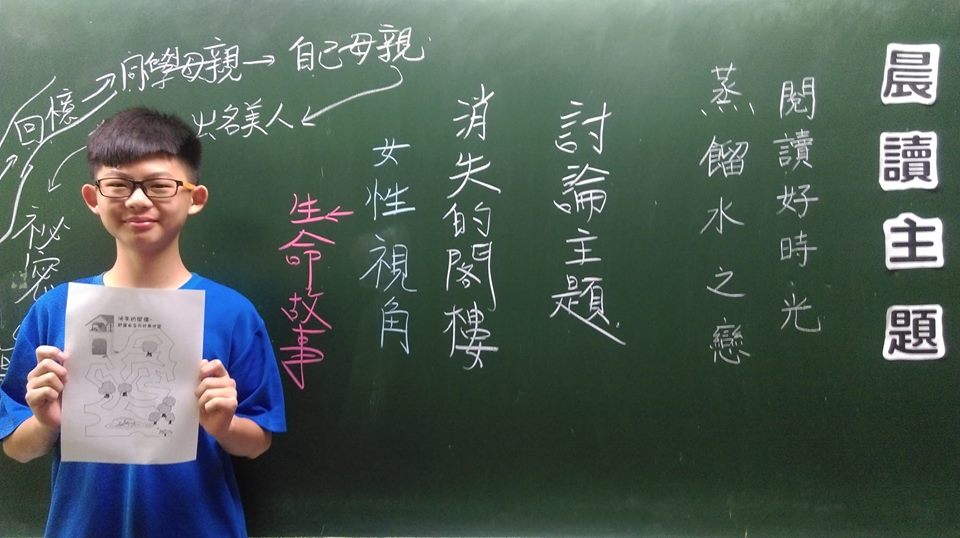 晨讀主題
閱讀好時光
蒸餾水之戀
討論主題
消失的閣樓
女性視角
生命故事
同學母親→自己母親
出名美人
回憶
祕密